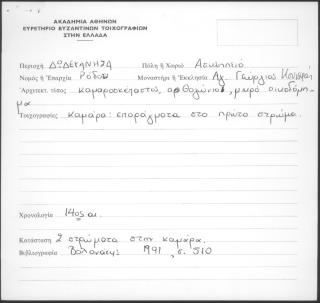 ΑΚΑΔΗΜΙΑ ΑΘΗΝΩΝ
ΕΥΡΕΤΗΡΙΟ ΒΥΖΑΝΤΙΝΩΝ ΤΟΙΧΟΓΡΑΦΙΩΝ
ΣΤΗΝ ΕΛΛΑΔΑ
Περιοχή ΔΩΔΕΚΑΝΗΣΑ Πόλη ή Χωριό Ασκληπιό
Νομός ή Επαρχία Ρόδου Μοναστήρι ή Εκκλησία Αγ. Γεώργιος
Αρχιτεκτ. τύπος καμαροσκέπαστο, ορθογώνιο, μικρό οικοδόμη-
μα
Τοιχογραφίες Καμάρα: σπαράγματα στο πρώτο στρώμα.
Χρονολογία 14ος αι.
Κατάσταση 2 στρώματα στην καμάρα.
Βιβλιογραφία Βολανάκης 1991, σ. 510